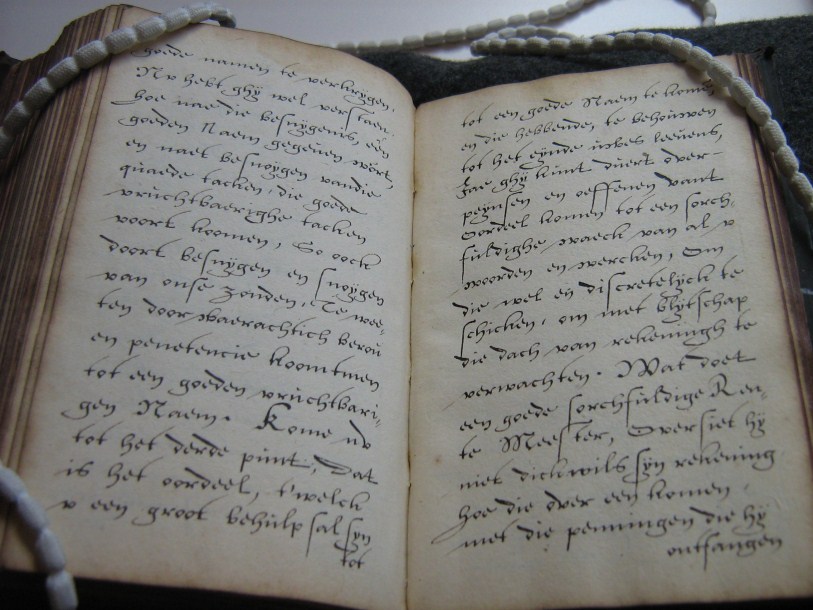 goede namen te verkrygen.
Nv hebt ghÿ wel verstaen
hoe nae die besnygenis, een
goeden Naem gegeuen wort,
en naet besnoygen vandie
quaede tacken, die goede
vruchtbaerighe tacken
voort koomen, So oock
doort besnygen en snoygen
van onse zonden, Te wee-
ten door waerachtich berou
en penetencie koomtmen
tot een goeden vruchtbari-
gen Naem. Kome nv
tot het derde pint, Dat
is het oordeel, t'welck
v een groot behulp sal syn
tot
tot een goede Naem te komen
en die hebbende, te behouwen
tot het eynde uwes leeuens,
Jae ghÿ kint duert ouer-
peynsen en oeffenen vant
Oordeel komen tot een sorch-
fuldighe waeck van al v
woorden en wercken, Om
die wel en discretelyck te
schicken, om met blytschap
die dach van rekeningh te
verwachten. Wat doet
een goede sorchfuldige Ren-
te Meester, Ouersiet hÿ
niet dickwils syn rekening
hoe die ouer een komen
met die penningen die hÿ
ontfangen